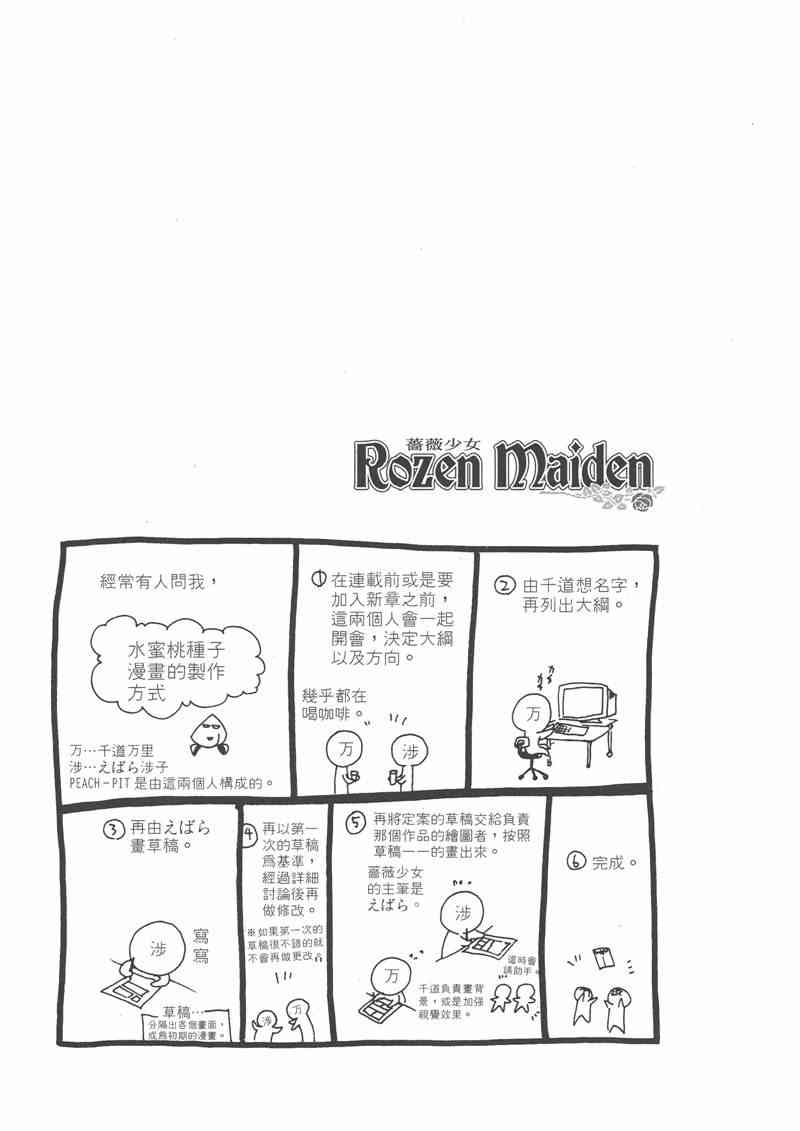 薔薇少女
Rozen Maiden
經常有人問我，
水蜜桃種子
漫畫的製作
方式
万…千道万里
涉…えばら涉子
PEACH-PIT 是由這兩個人構成的。
① 在連載前或是要
加入新章之前，
這兩個人會一起
開會，決定大綱
以及方向。
幾乎都在
喝咖啡。
万
涉
② 由千道想名字，
再列出大綱。
カカ
万
③ 再由えばら
畫草稿。
涉
寫
寫
草稿…
分隔出各個畫面，
或為初期的漫畫。
④ 再以第一
次的草稿
為基準，
經過詳細
討論後再
做修改。
※如果第一次的
草稿很不錯的就
不會再做更改。
涉
万
⑤ 再將定案的草稿交給負責
那個作品的繪圖者，按照
草稿一一的畫出來。
薔薇少女
的主筆是
えばら。
涉
万
千道負責畫背
景，或是加強
視覺效果。
這時會
請助手。
⑥ 完成。